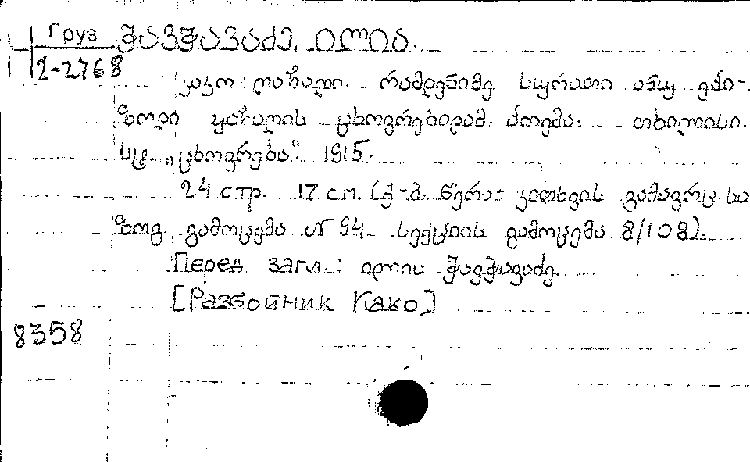 Груз ჭავჭავაძე, ილია.
2-2768
კაკო ყაჩაღი. რამდენიმე სურათი ანუ ეპი-
ზოდი ყაჩაღის ცხოვრებიდამ. პოემა. თბილისი.
სტ. „ცხოვრება" 1915.
24 стр. 17 см. (ქ-შ. წერა-კითხვის გამავრც. სა
ზოგ. გამოცემა № 94. სექციის გამოცემა 8/108).
Перед загл.: ილია ჭავჭავაძე.
[Разбойник Како]
8358